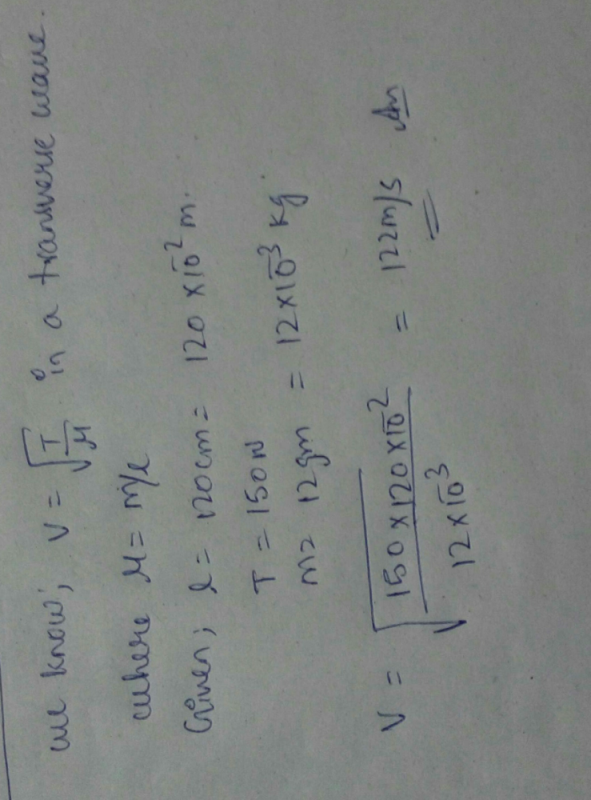 we know; V = √T/μ in a transverse wave.
where μ = m/l
Given; l = 120cm = 120 × 10⁻² m.
T = 150N
m = 12gm = 12×10⁻³ kg.
V = √150×120×10⁻²/12×10⁻³ = 122m/s Ans